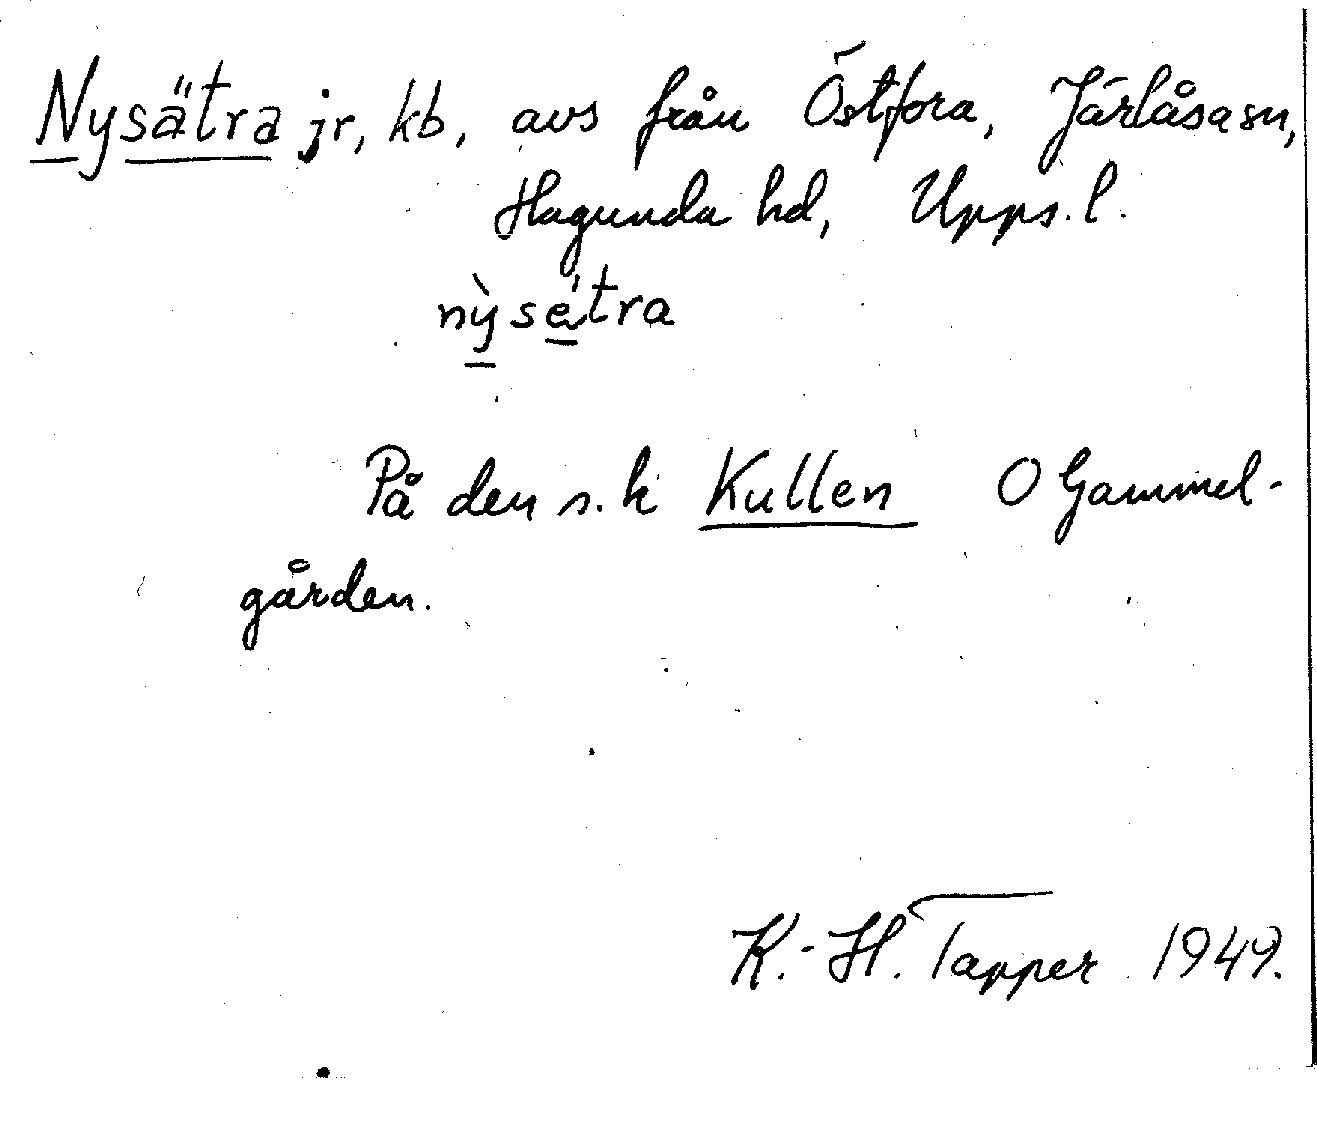 Nysätra jr, kb, avs från Östfora, Järlåsa sn,
Hagunda hd, Upps. l.
nỳsä́tra
På den s.k Kullen O Gammel-
gården.
K.-H. Tapper 1949.